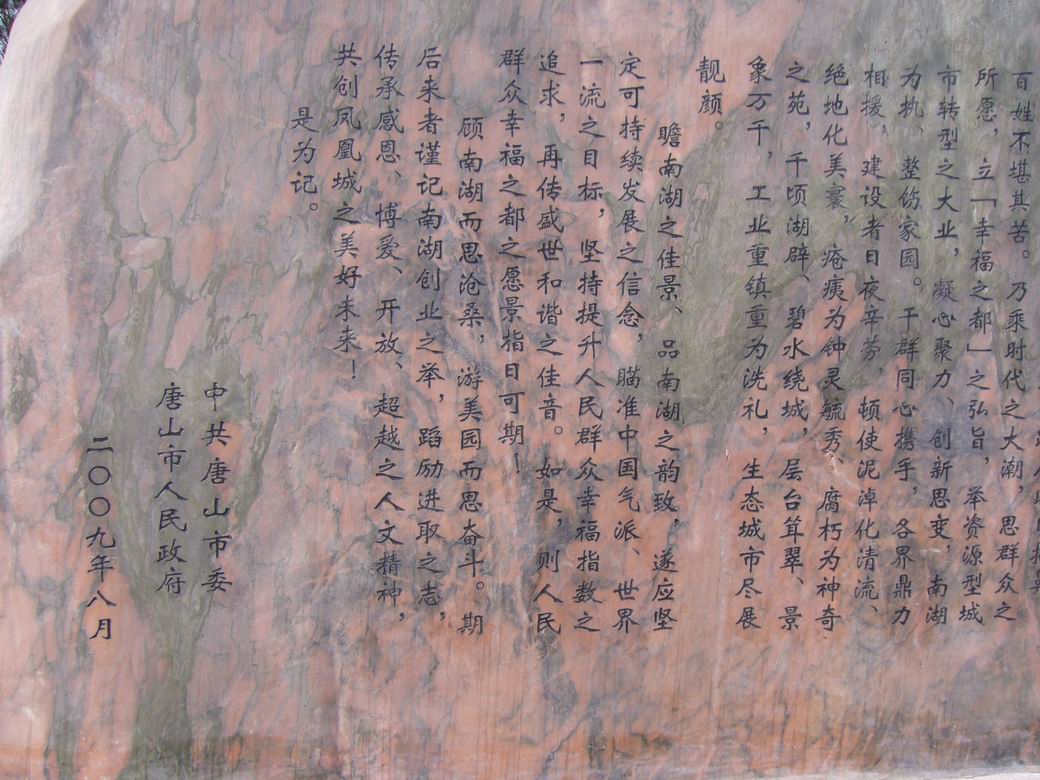 百姓不堪其苦。乃乘时代之大潮，思群众之
所愿，立「幸福之都」之弘旨，举资源型城
市转型之大业，凝心聚力、创新思变，南湖
为执、整饬家园。干群同心携手，各界鼎力
相援，建设者日夜辛劳，顿使泥淖化清流、
绝地化美寰，疮痍为钟灵毓秀、腐朽为神奇
之苑，千顷湖辟、碧水绕城，层台耸翠、景
象万千，工业重镇重为洗礼，生态城市尽展
靓颜。
瞻南湖之佳景、品南湖之韵致，遂应坚
定可持续发展之信念，瞄准中国气派、世界
一流之目标，坚持提升人民群众幸福指数之
追求，再传盛世和谐之佳音。如是，则人民
群众幸福之都之愿景指日可期！
顾南湖而思沧桑，游美园而思奋斗。期
后来者谨记南湖创业之举，蹈励进取之志，
传承感恩、博爱、开放、超越之人文精神，
共创凤凰城之美好未来！
是为记。
中共唐山市委
唐山市人民政府
二〇〇九年八月